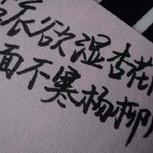 衣欲湿杏花
面不寒杨柳